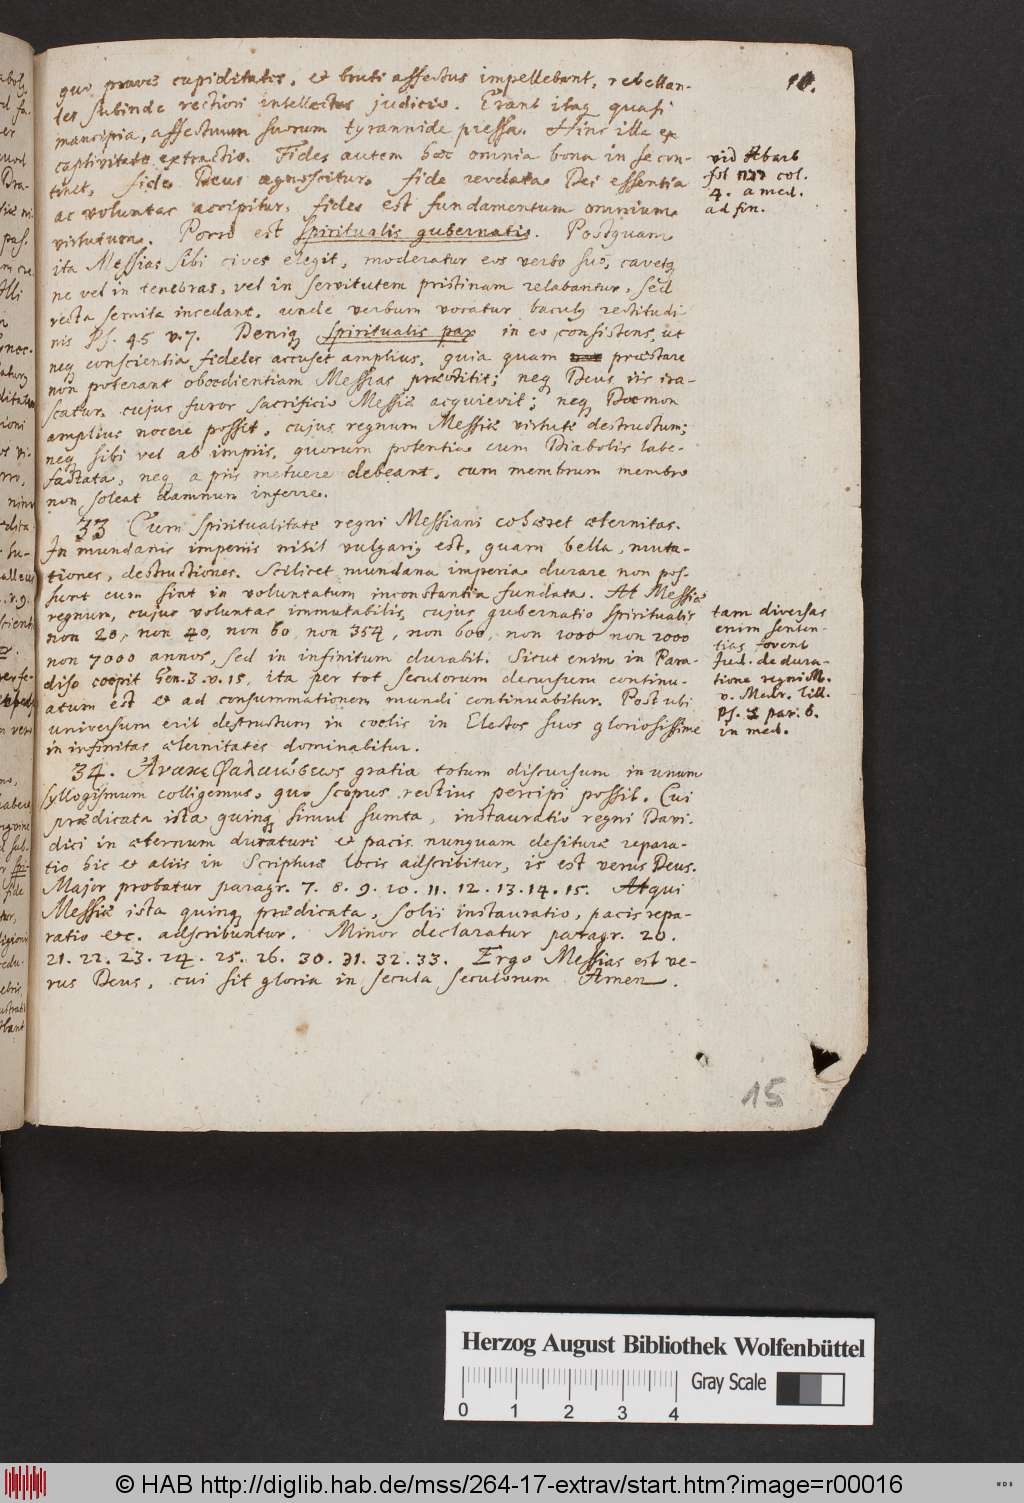 11.
quo pravæ cupiditates, et bruti affectus impellebant, rebellan-
tes subinde rectiori intellectus judicio. Erant itaq quasi
mancipia, affectuum suorum tyrannide pressa. Hinc illa ex
captivitate extractio. Fides autem hæc omnia bona in se con-
tinet, fide Deus agnoscitur, fide revelata Dei essentia
ac voluntas accipitur, fides est fundamentum omnium
virtutum. Porro est spiritualis gubernatio. Postquam
ita Messias sibi cives elegit, moderatur eos verbo suo, cavetq
ne vel in tenebras, vel in servitutem pristinam relabantur, sed
recta semita incedant. unde verbum vocatur baculq rectitudi
nis Ps. 45 v. 7. Deniq spiritualis pax in eo consistens, ut
neq conscientia fideles accuset amplius, quia quam præstare
non poterant obœdientiam Messias præstitit; neq Deus iis ira-
scatur, cujus furor sacrificio Messiæ acquievit; neq Dæmon
amplius nocere possit, cujus regnum Messiæ virtute destructum;
neq sibi vel ab impiis, quorum potentia cum Diabolis labe-
factata, neq a piis metuere debeant, cum membrum membro
non soleat damnum inferre.
33 Cum spiritualitate regni Messiani cohæret æternitas.
In mundanis imperiis nihil vulgariq est, quam bella, muta-
tiones, destructiones. Scilicet mundana imperia durare non pos-
sunt cum sint in voluntatum inconstantia fundata. At Messiæ
regnum, cujus voluntas immutabilis, cujus gubernatio spiritualis
non 20, non 40, non 60, non 354, non 600, non 1000 non 2000
non 7000 annos, sed in infinitum durabit. Sicut enim in Para-
diso cœpit Gen. 3. v. 15, ita per tot seculorum decursum continu-
atum est et ad consummationem mundi continuabitur. Post ubi
universum erit destructum in cœlis in Electos suos gloriosissime
in infinitas æternitates dominabitur.
34. Ἀνακεφαλαιώσεως gratia totum discursum in unum
syllogismum colligemus, quo scopus rectius percipi possit. Cui
prædicata ista quinq simul sumta, instauratio regni Davi-
dici in æternum duraturi et pacis nunquam desituræ repara-
tio hic et aliis in Scripturæ locis adscribitur, is est verus Deus.
Major probatur paragr. 7. 8. 9. 10. 11. 12. 13. 14. 15. Atqui
Messiæ ista quinq prædicata, solii instauratio, pacis repa-
ratio etc. adscribuntur. Minor declaratur paragr. 20.
21. 22. 23. 24. 25. 26. 30. 31. 32. 33. Ergo Messias est ve-
rus Deus, cui sit gloria in secula seculorum Amen.
vid Abarb
fol col.
4. a med.
ad fin.
tam diversas
enim senten-
tias fovent
Jud. de dura-
tione regni M.
v. Medr. Till.
Ps. 2 par. 6.
in med.
15
Herzog August Bibliothek Wolfenbüttel
Gray Scale
0 1 2 3 4
© HAB http://diglib.hab.de/mss/264-17-extrav/start.htm?image=r00016